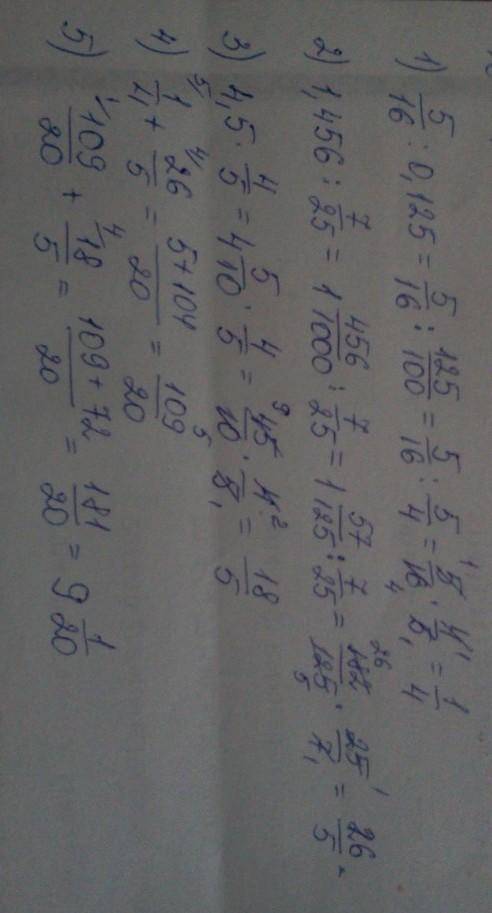 1) 5/16 : 0,125 = 5/16 : 125/100 = 5/16 : 5/4 = 5/16 · 4/5 = 1/4
2) 1,456 : 7/25 = 1 456/1000 : 7/25 = 1 57/125 : 7/25 = 182/125 · 25/7 = 26/5
3) 4,5 · 4/5 = 4 5/10 · 4/5 = 45/10 · 4/5 = 18/5
4) 1/4 + 26/5 = 5+104/20 = 109/20
5) 109/20 + 18/5 = 109+72/20 = 181/20 = 9 1/20